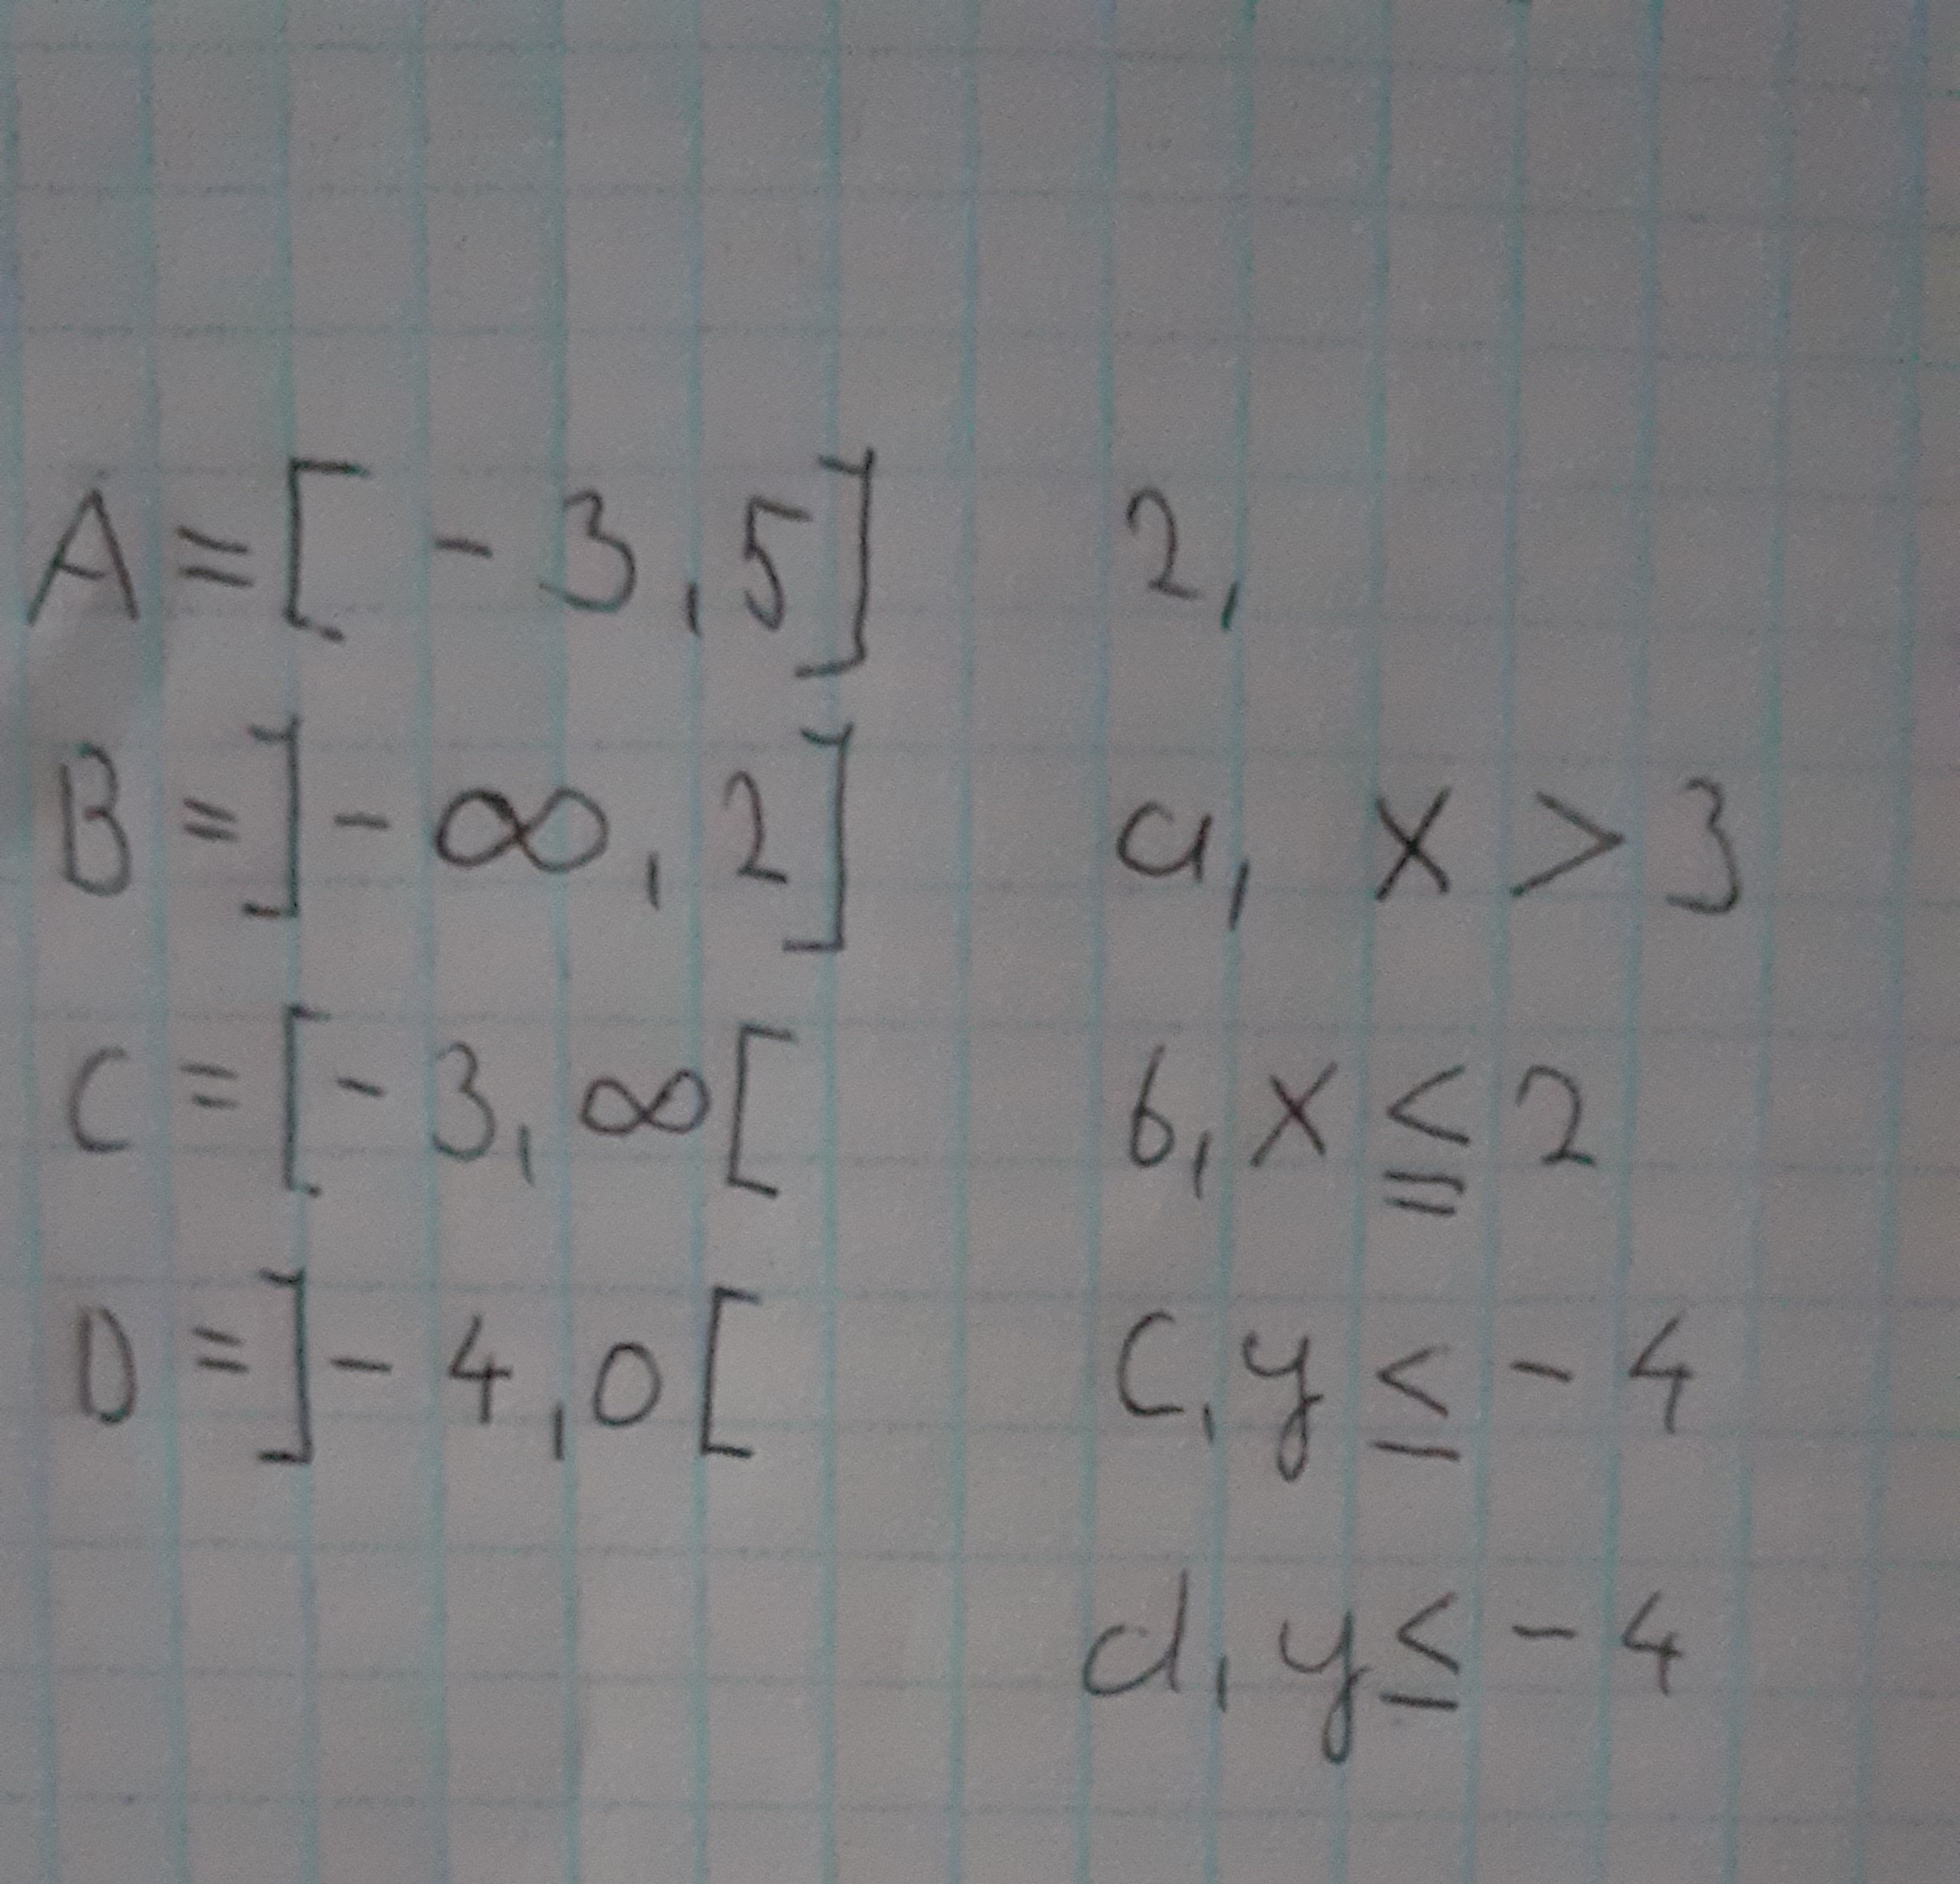 A = [ - 3 , 5 ]
B = ] - ∞ , 2 ]
C = [ - 3 , ∞ [
D = ] - 4 , 0 [
2,
a, x > 3
b, x ≦ 2
c, y ≤ - 4
d, y ≤ - 4